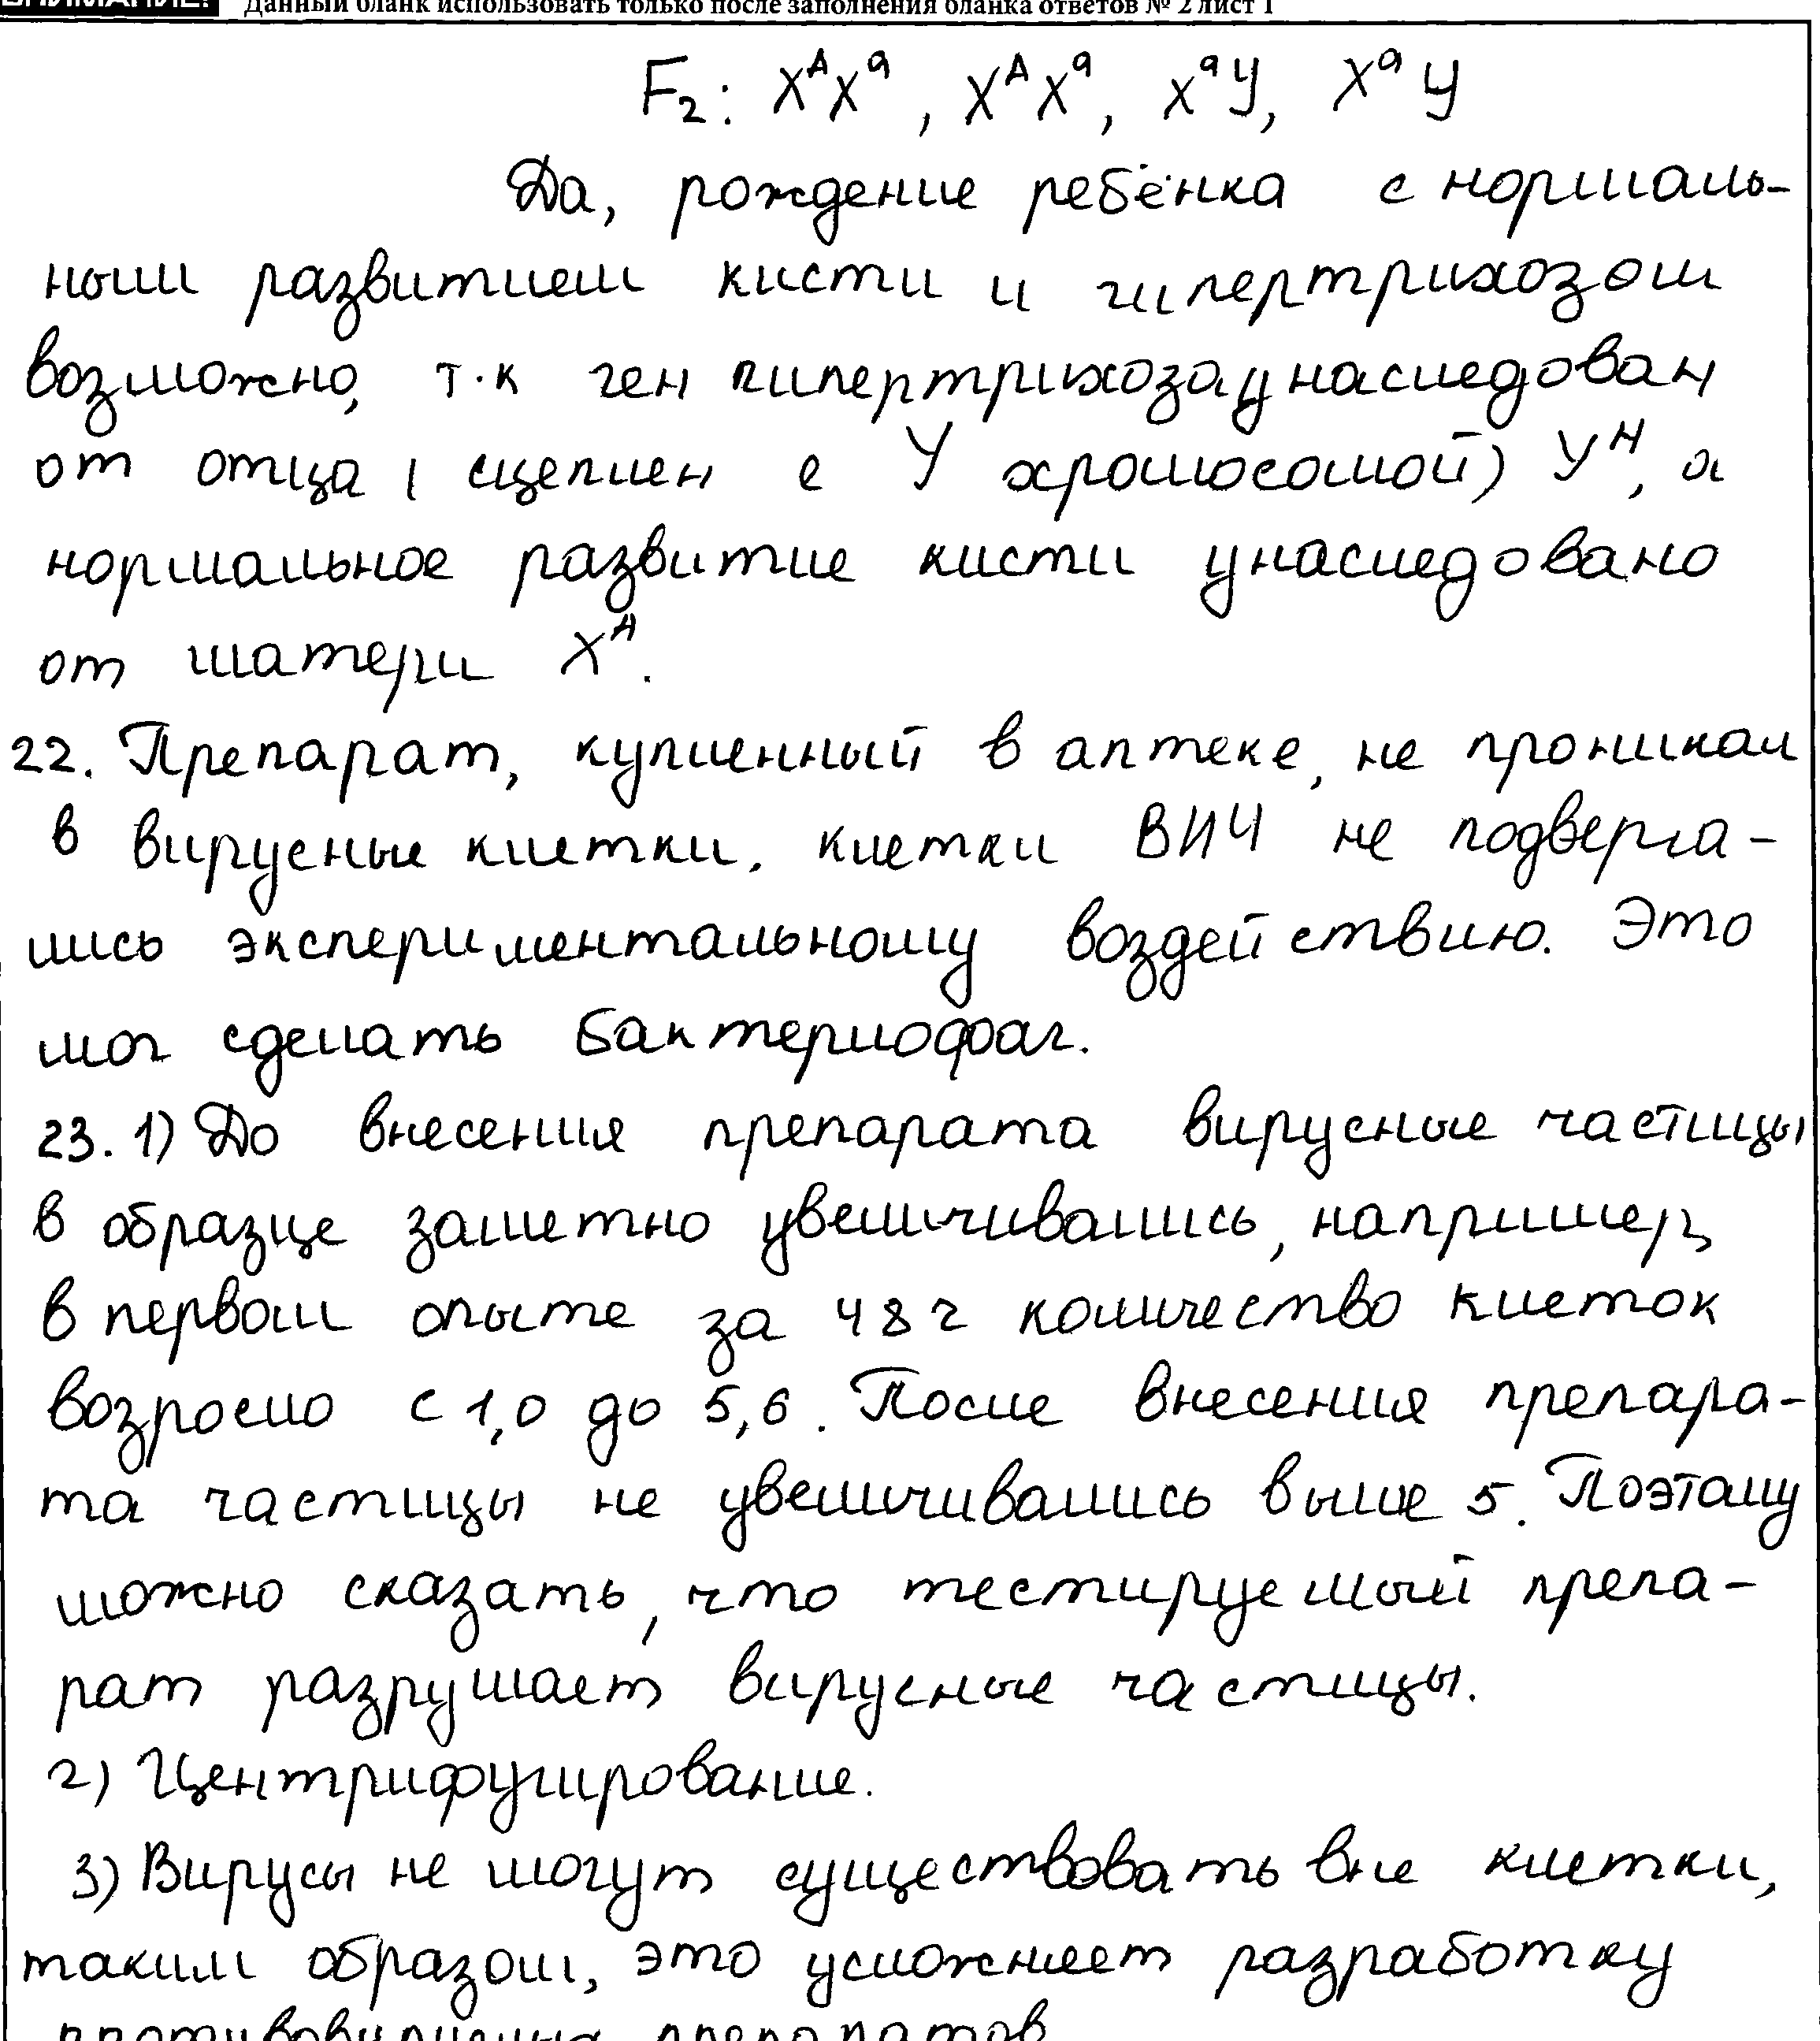 ВНИМАНИЕ! Данный бланк использовать только после заполнения бланка ответов № 2 лист 1
F₂: XᴬXᵃ, XᴬXᵃ, XᵃУ, XᵃУ
Да, рождение ребёнка с нормаль-
ным развитием кисти и гипертрихозом
возможно, т.к ген гипертрихоза унаследован
от отца (сцеплен с У хромосомой) Уᴴ, а
нормальное развитие кисти унаследовано
от матери Xᴬ.
22. Препарат, купленный в аптеке, не проникал
в вирусные клетки. клетки ВИЧ не подверга-
лись экспериментальному воздействию. Это
мог сделать бактериофаг.
23. 1) До внесения препарата вирусные частицы
в образце заметно увеличивались, например,
в первом опыте за 48 г количество клеток
возросло с 1,0 до 5,6. После внесения препара-
та частицы не увеличивались выше 5. Поэтому
можно сказать, что тестируемый препа-
рат разрушает вирусные частицы.
2) Центрифугирование.
3) Вирусы не могут существовать вне клетки,
таким образом, это усложняет разработку
противовирусных препаратов